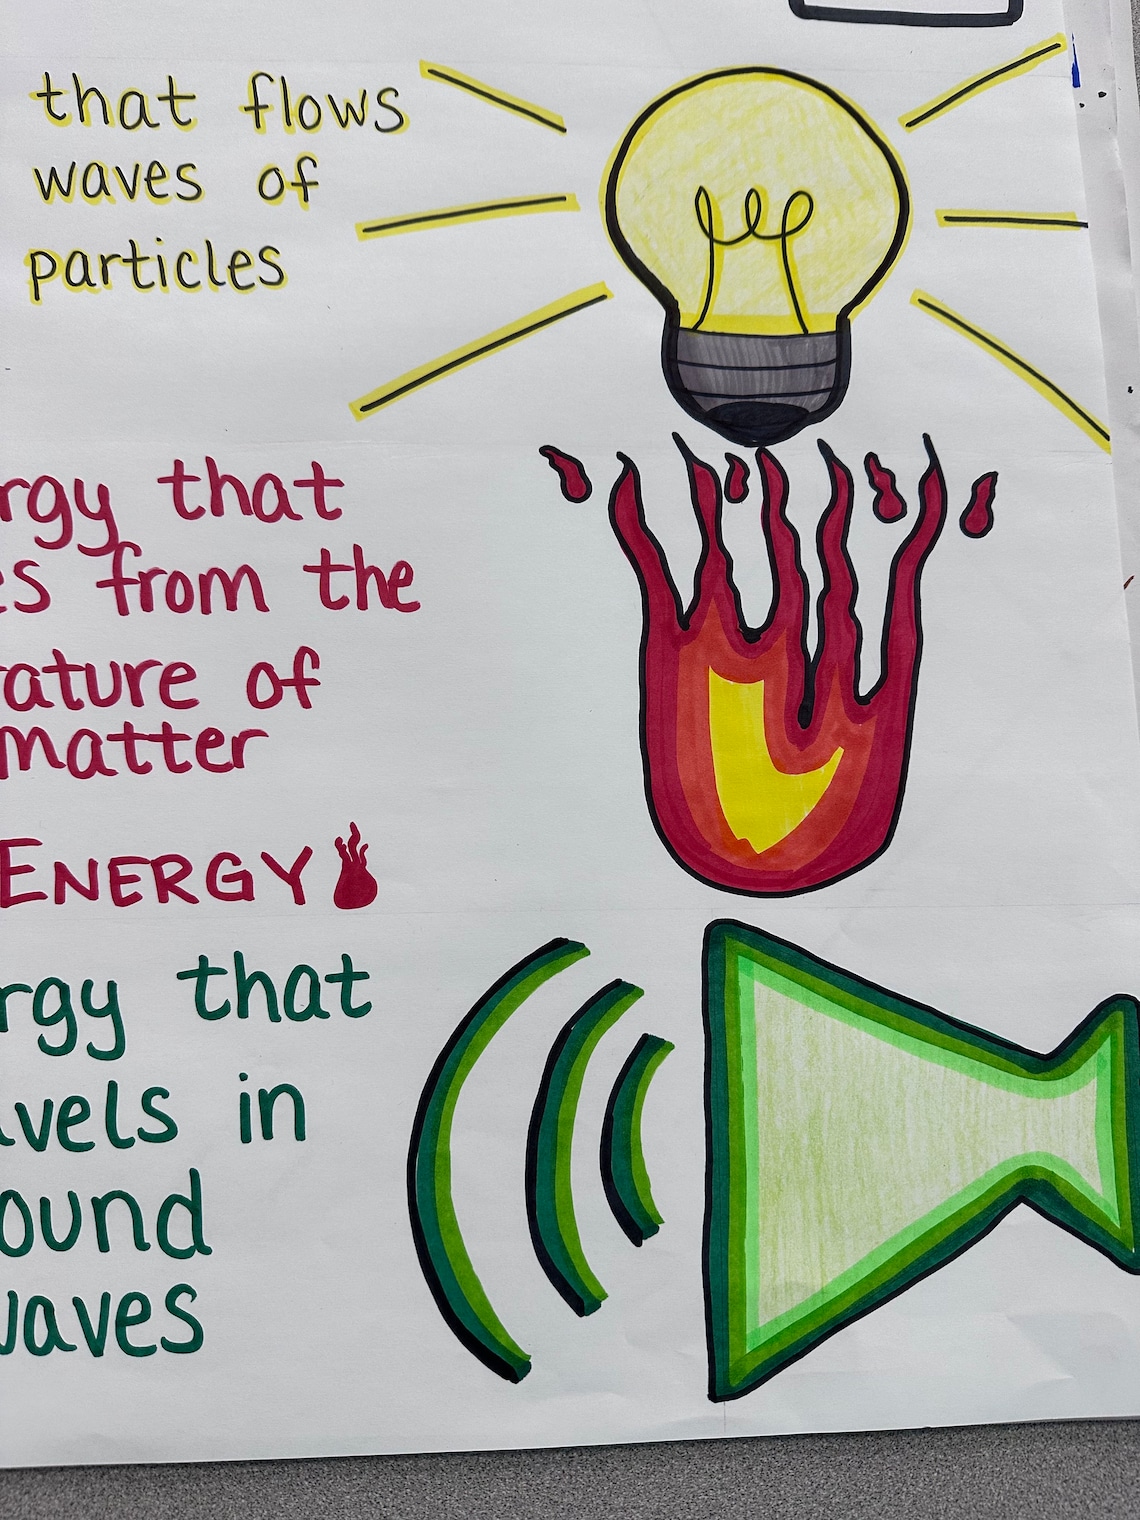 that flows
waves of
particles
rgy that
es from the
ature of
matter
ENERGY
rgy that
avels in
ound
waves